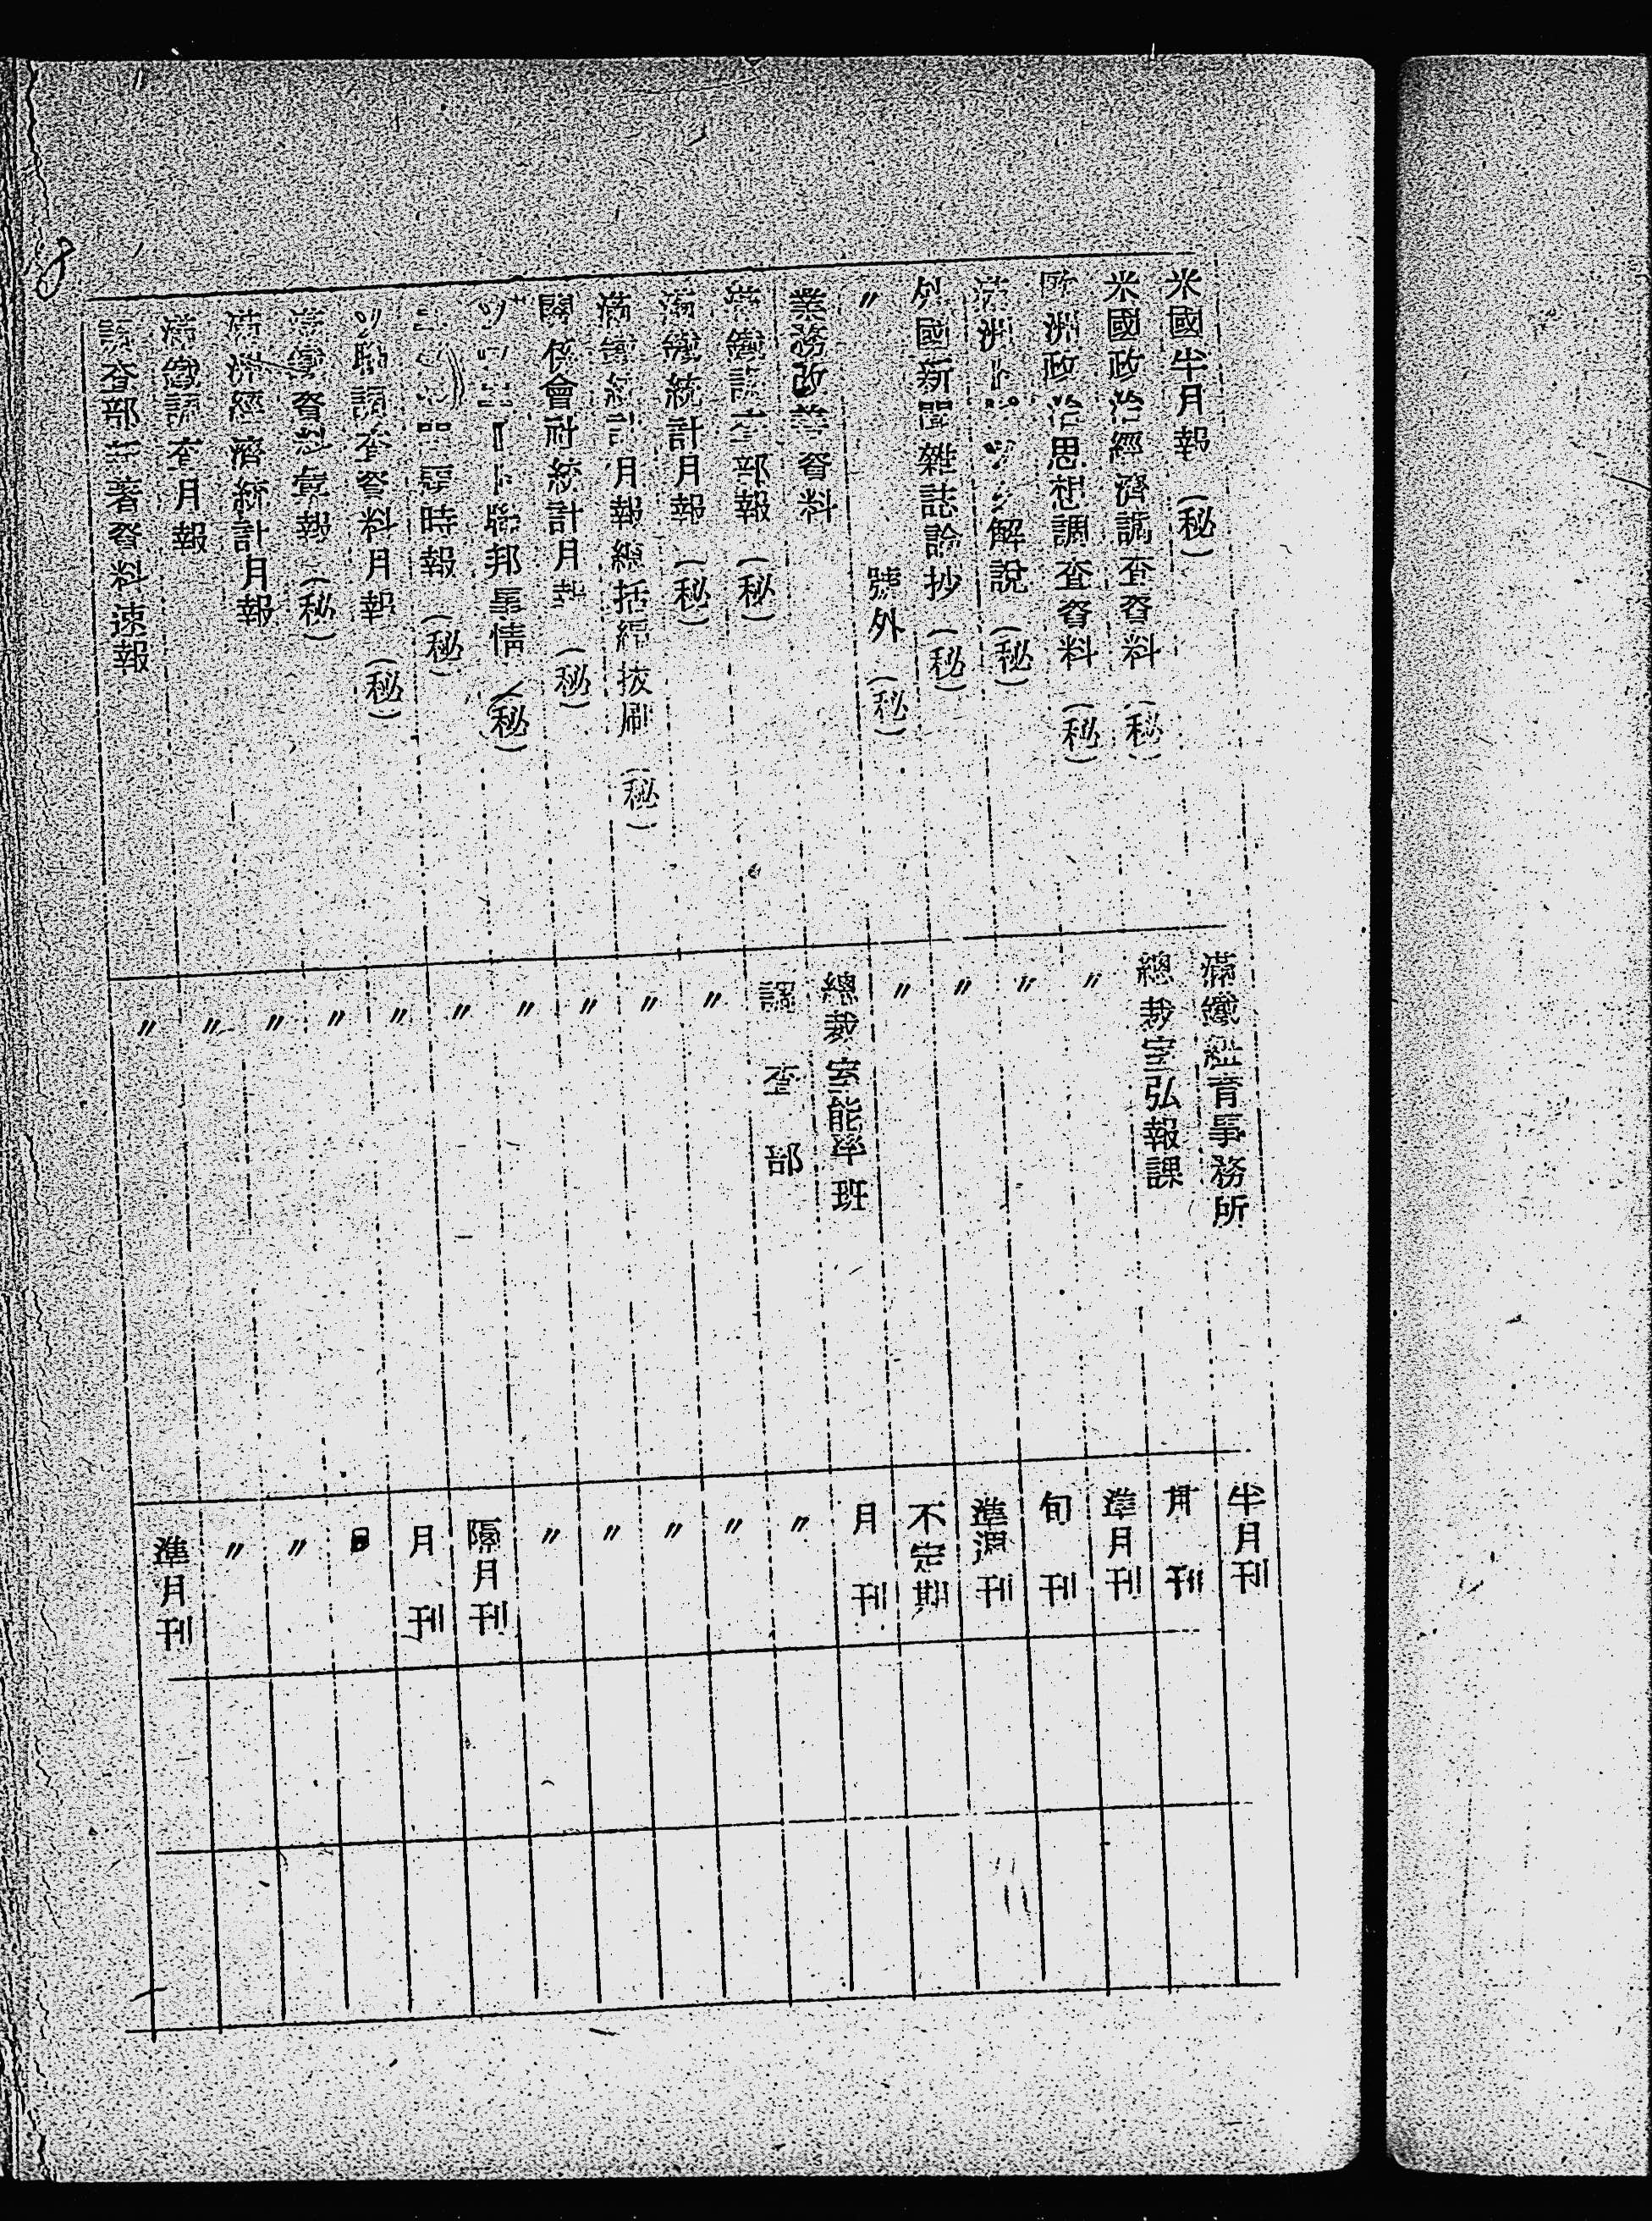 米國半月報（秘） 滿鐵紐育事務所 半月刊
米國政治經濟調查資料（秘） 總裁室弘報課 月刊
歐洲政治思想調查資料（秘） 〃 準月刊
滿洲 解說（秘） 〃 旬刊
外國新聞雜誌論抄（秘） 〃 準週刊
〃 號外（秘） 〃 不定期
業務改善資料 總裁室能率班 月刊
滿鐵調查部報（秘） 調查部 〃
滿鐵統計月報（秘） 〃 〃
滿鐵統計月報總括編拔刷（秘） 〃 〃
關係會社統計月報（秘） 〃 〃
聯邦事情（秘） 〃 〃
時報（秘） 〃 隔月刊
ソ聯調查資料月報（秘） 〃 月刊
滿鐵資料彙報（秘） 〃
滿洲經濟統計月報 〃 〃
滿鐵調查月報 〃 〃
調查部 著資料速報 〃 準月刊